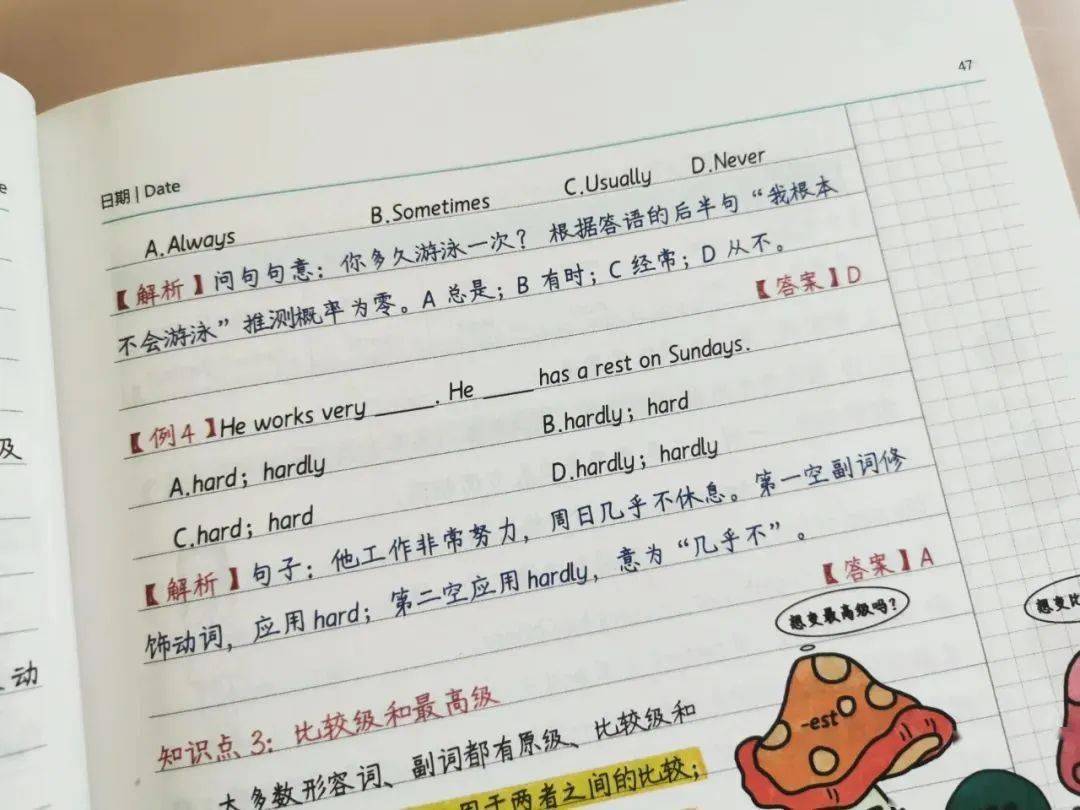 47
日期 | Date
A.Always B.Sometimes C.Usually D.Never
【解析】问句句意：你多久游泳一次？ 根据答语的后半句“我根本
不会游泳”推测概率为零。A 总是；B 有时；C 经常；D 从不。
【答案】D
【例4】He works very _____. He _____ has a rest on Sundays.
A.hard；hardly B.hardly；hard
C.hard；hard D.hardly；hardly
【解析】句子：他工作非常努力，周日几乎不休息。第一空副词修
饰动词，应用hard；第二空应用hardly，意为“几乎不”。
【答案】A
想变最高级吗？
想变比
知识点3：比较级和最高级
-est
大多数形容词、副词都有原级、比较级和
用于两者之间的比较；
e
及
、动